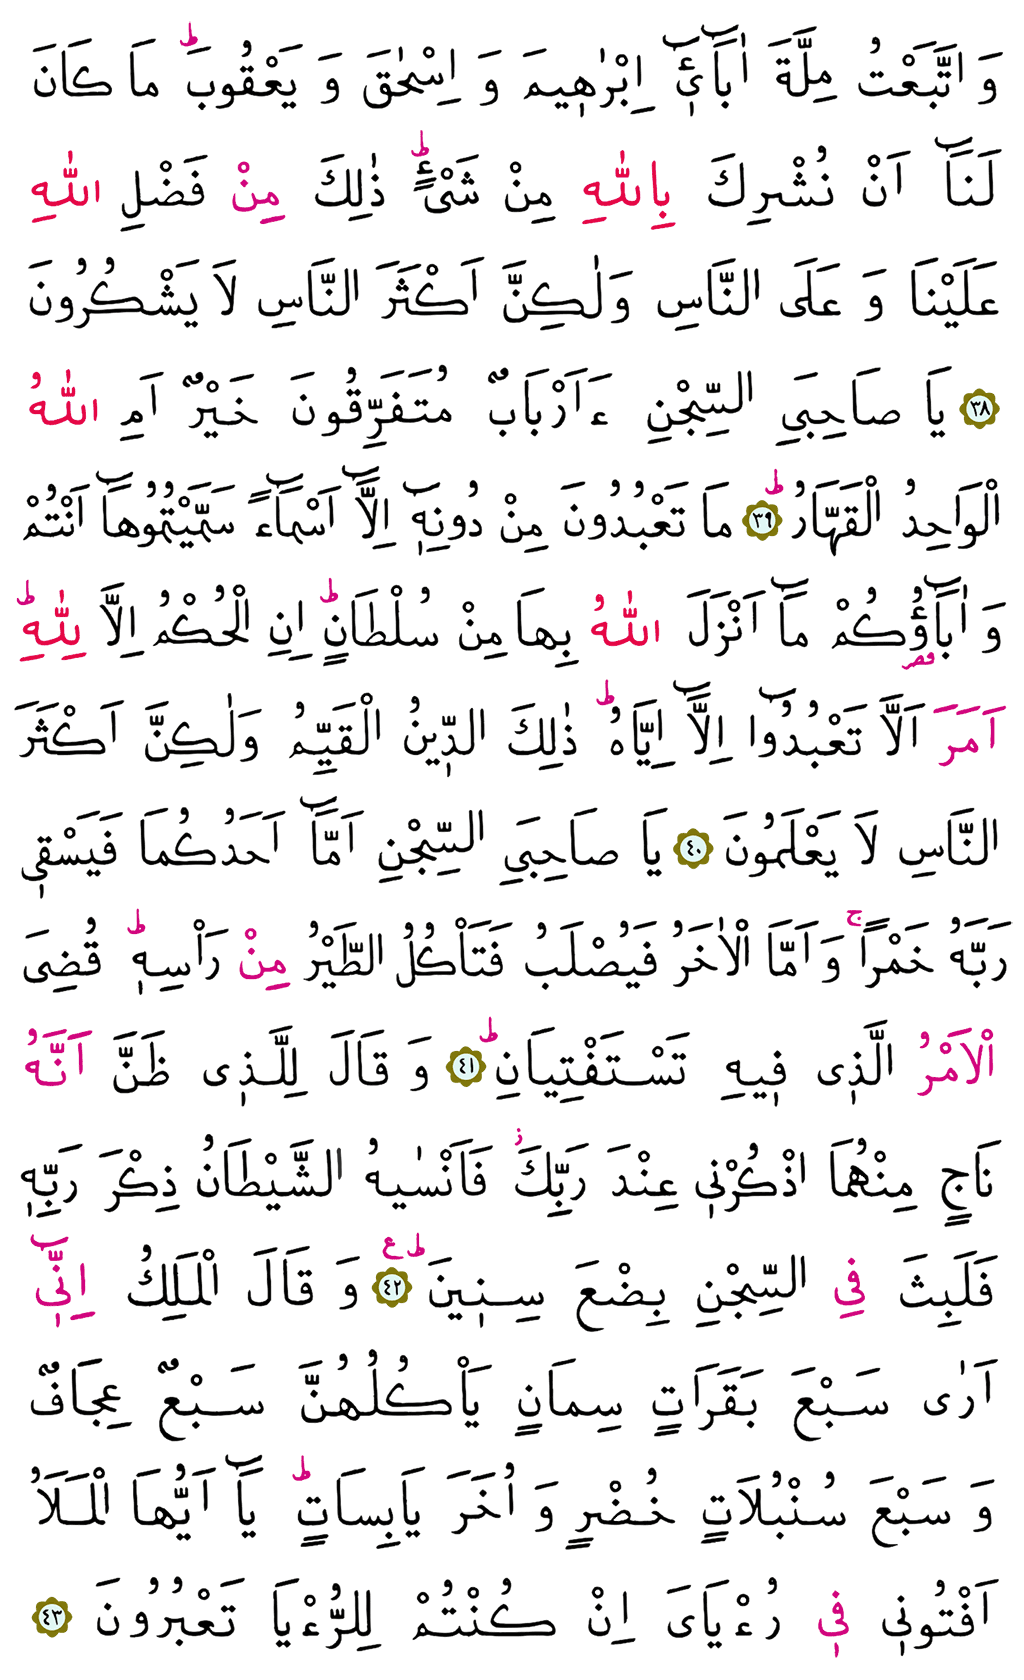 وَ اتَّبَعْتُ مِلَّةَ اٰبَٓائ۪ٓي اِبْرٰه۪يمَ وَ اِسْحٰقَ وَ يَعْقُوبَ ؕ مَا كَانَ
لَنَٓا اَنْ نُشْرِكَ بِاللّٰهِ مِنْ شَىْءٍ ؕ ذٰلِكَ مِنْ فَضْلِ اللّٰهِ
عَلَيْنَا وَ عَلَى النَّاسِ وَلٰكِنَّ اَكْثَرَ النَّاسِ لَا يَشْكُرُونَ
﴿٣٨﴾ يَا صَاحِبَيِ السِّجْنِ ءَاَرْبَابٌ مُتَفَرِّقُونَ خَيْرٌ اَمِ اللّٰهُ
الْوَاحِدُ الْقَهَّارُ ؕ ﴿٣٩﴾ مَا تَعْبُدُونَ مِنْ دُونِه۪ٓ اِلَّٓا اَسْمَٓاءً سَمَّيْتُمُوهَٓا اَنْتُمْ
وَ اٰبَٓاؤُ۬كُمْ مَٓا اَنْزَلَ اللّٰهُ بِهَا مِنْ سُلْطَانٍ ؕ اِنِ الْحُكْمُ اِلَّا لِلّٰهِ ؕ
اَمَرَ اَلَّا تَعْبُدُٓوا اِلَّٓا اِيَّاهُ ؕ ذٰلِكَ الدّ۪ينُ الْقَيِّمُ وَلٰكِنَّ اَكْثَرَ
النَّاسِ لَا يَعْلَمُونَ ﴿٤٠﴾ يَا صَاحِبَيِ السِّجْنِ اَمَّٓا اَحَدُكُمَا فَيَسْق۪ي
رَبَّهُ خَمْرًا ۚ وَ اَمَّا الْاٰخَرُ فَيُصْلَبُ فَتَاْكُلُ الطَّيْرُ مِنْ رَاْسِه۪ ؕ قُضِيَ
الْاَمْرُ الَّذ۪ى ف۪يهِ تَسْتَفْتِيَانِ ؕ ﴿٤١﴾ وَ قَالَ لِلَّذ۪ى ظَنَّ اَنَّهُ
نَاجٍ مِنْهُمَا اذْكُرْن۪ي عِنْدَ رَبِّكَ ؗ فَاَنْسٰيهُ الشَّيْطَانُ ذِكْرَ رَبِّه۪
فَلَبِثَ فِي السِّجْنِ بِضْعَ سِن۪ينَ ؕ ع ﴿٤٢﴾ وَ قَالَ الْمَلِكُ اِنّ۪ٓي
اَرٰى سَبْعَ بَقَرَاتٍ سِمَانٍ يَاْكُلُهُنَّ سَبْعٌ عِجَافٌ
وَ سَبْعَ سُنْبُلَاتٍ خُضْرٍ وَ اُخَرَ يَابِسَاتٍ ؕ يَٓا اَيُّهَا الْمَلَاُ
اَفْتُون۪ي ف۪ي رُءْيَاىَ اِنْ كُنْتُمْ لِلرُّءْيَا تَعْبُرُونَ ﴿٤٣﴾